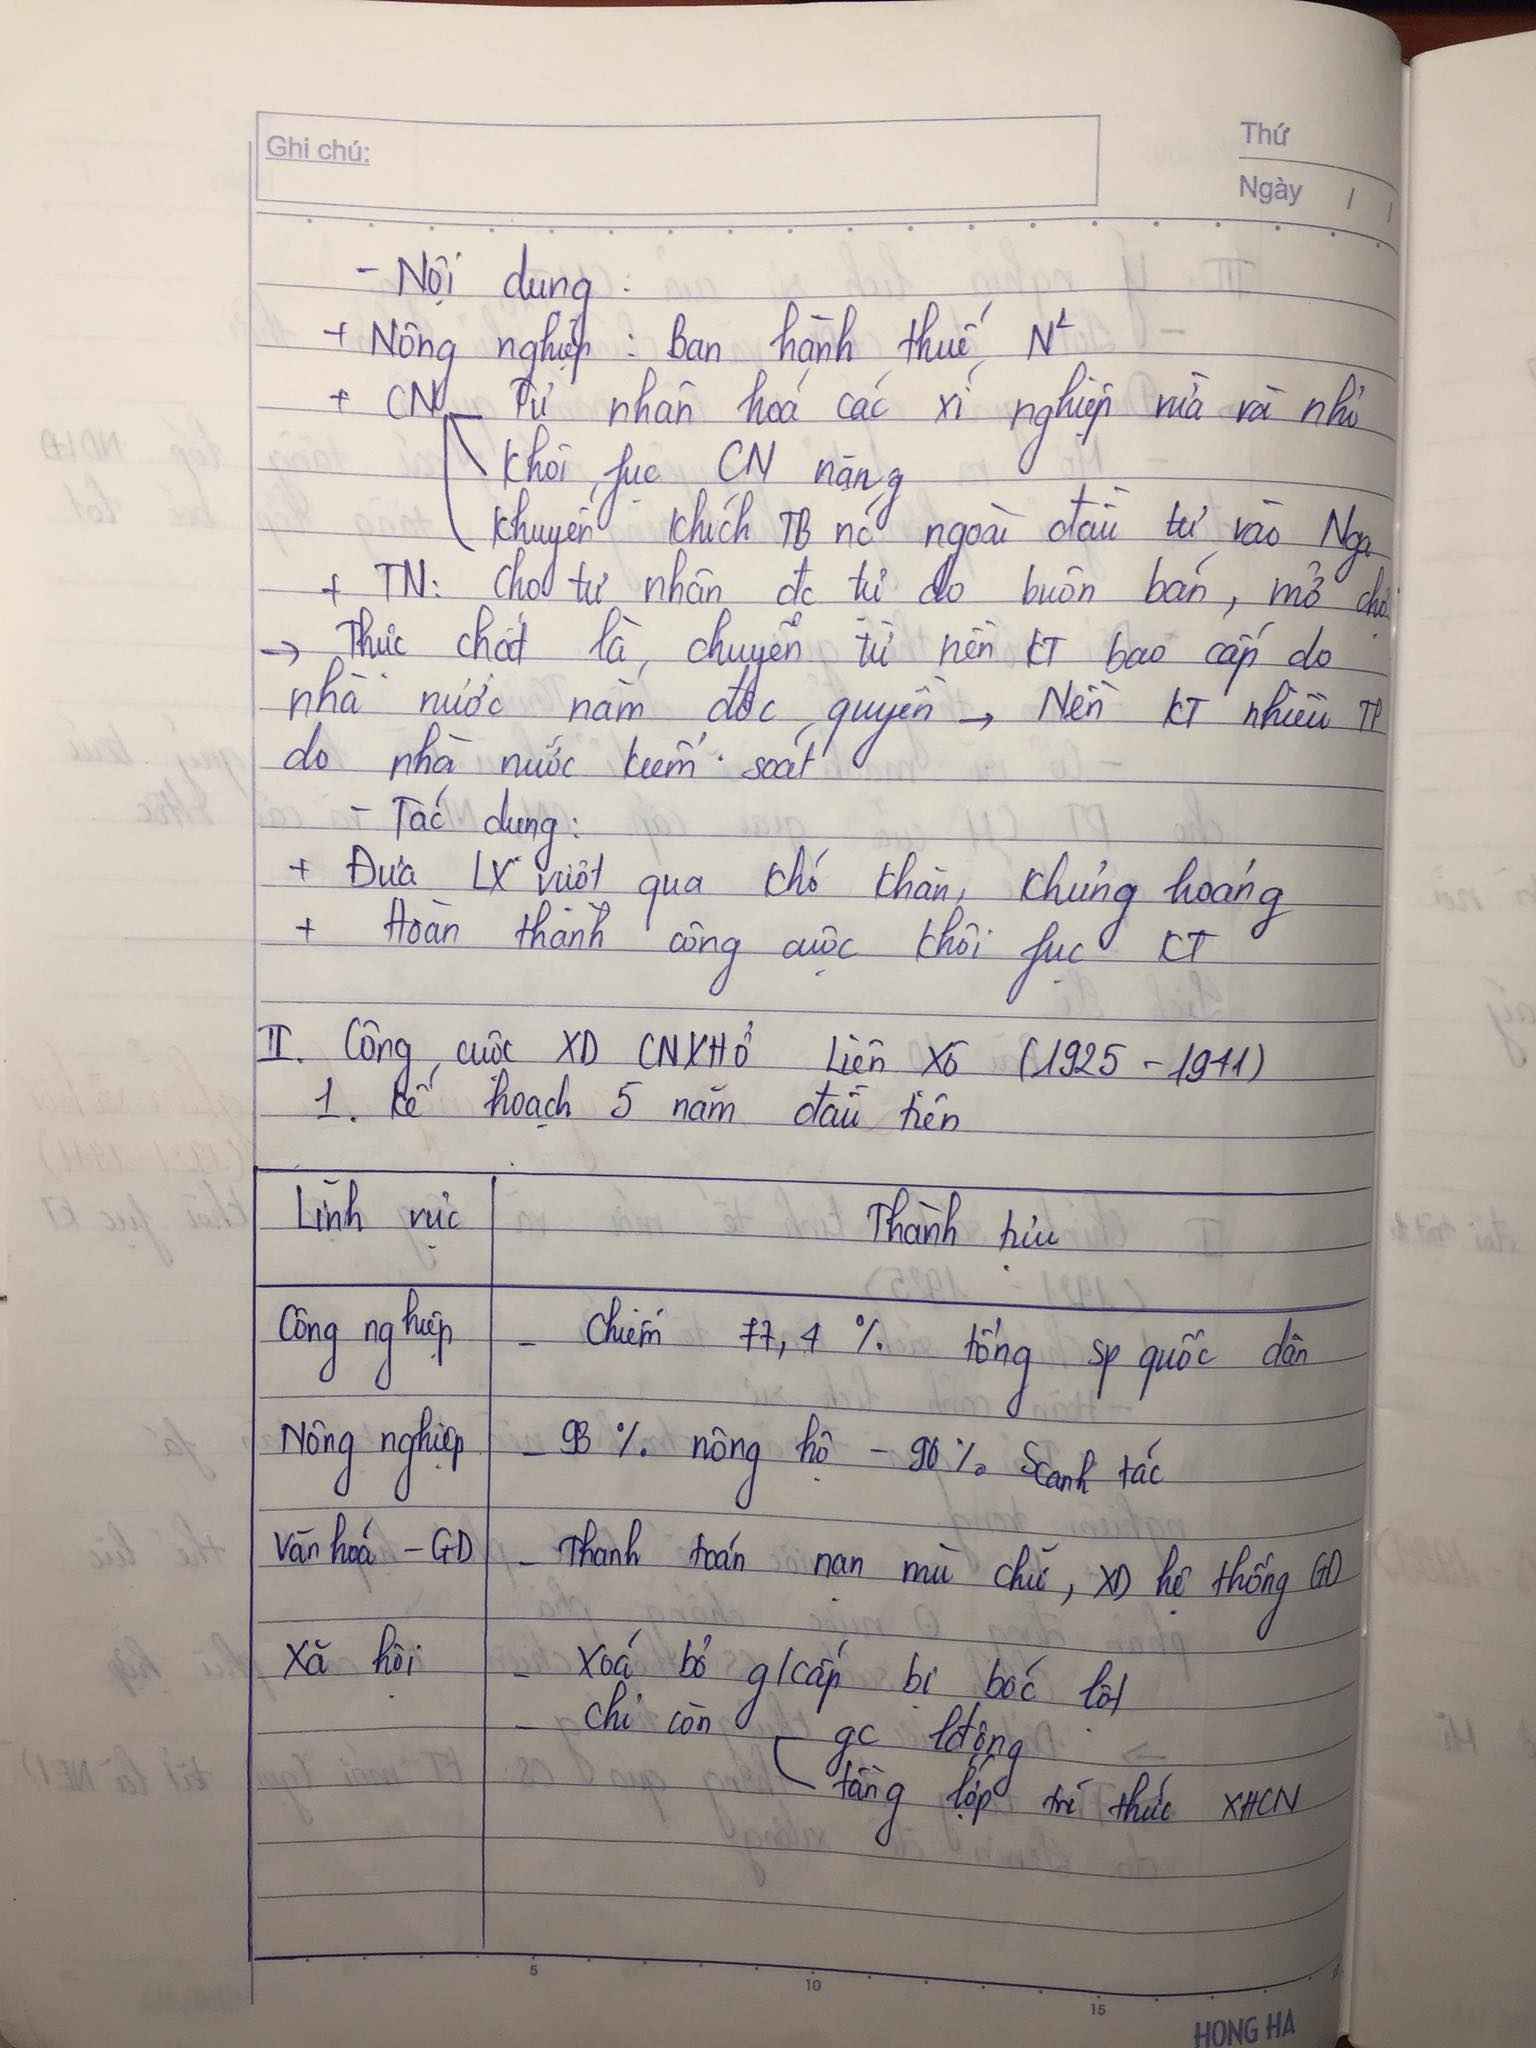 Ghi chú:
Thứ
Ngày / /
- Nội dung :
+ Nông nghiệp : Ban hành thuế N²
+ CN - Tư nhân hoá các xí nghiệp vừa và nhỏ
Khôi fục CN nặng
Khuyến khích TB nc ngoài đầu tư vào Nga
+ TN: Cho tư nhân đc tự do buôn bán, mở chợ
→ Thực chất là chuyển từ nền KT bao cấp do
nhà nước nắm độc quyền → Nền KT nhiều TP
do nhà nước kiểm soát
- Tác dụng:
+ Đưa LX vượt qua khó khăn, khủng hoảng
+ Hoàn thành công cuộc khôi fục KT
II. Công cuộc XD CNXH ở Liên Xô (1925 - 1941)
1. Kế hoạch 5 năm đầu tiên
Lĩnh vực Thành tựu
Công nghiệp - Chiếm 77,4 % tổng sp quốc dân
Nông nghiệp - 93 % nông hộ - 90 % Scanh tác
Văn hoá - GD - Thanh toán nạn mù chữ, XD hệ thống GD
Xã hội - Xoá bỏ g/cấp bị bóc lột
- Chỉ còn gc lđộng
tầng lớp trí thức XHCN
5 10 15
HONG HA